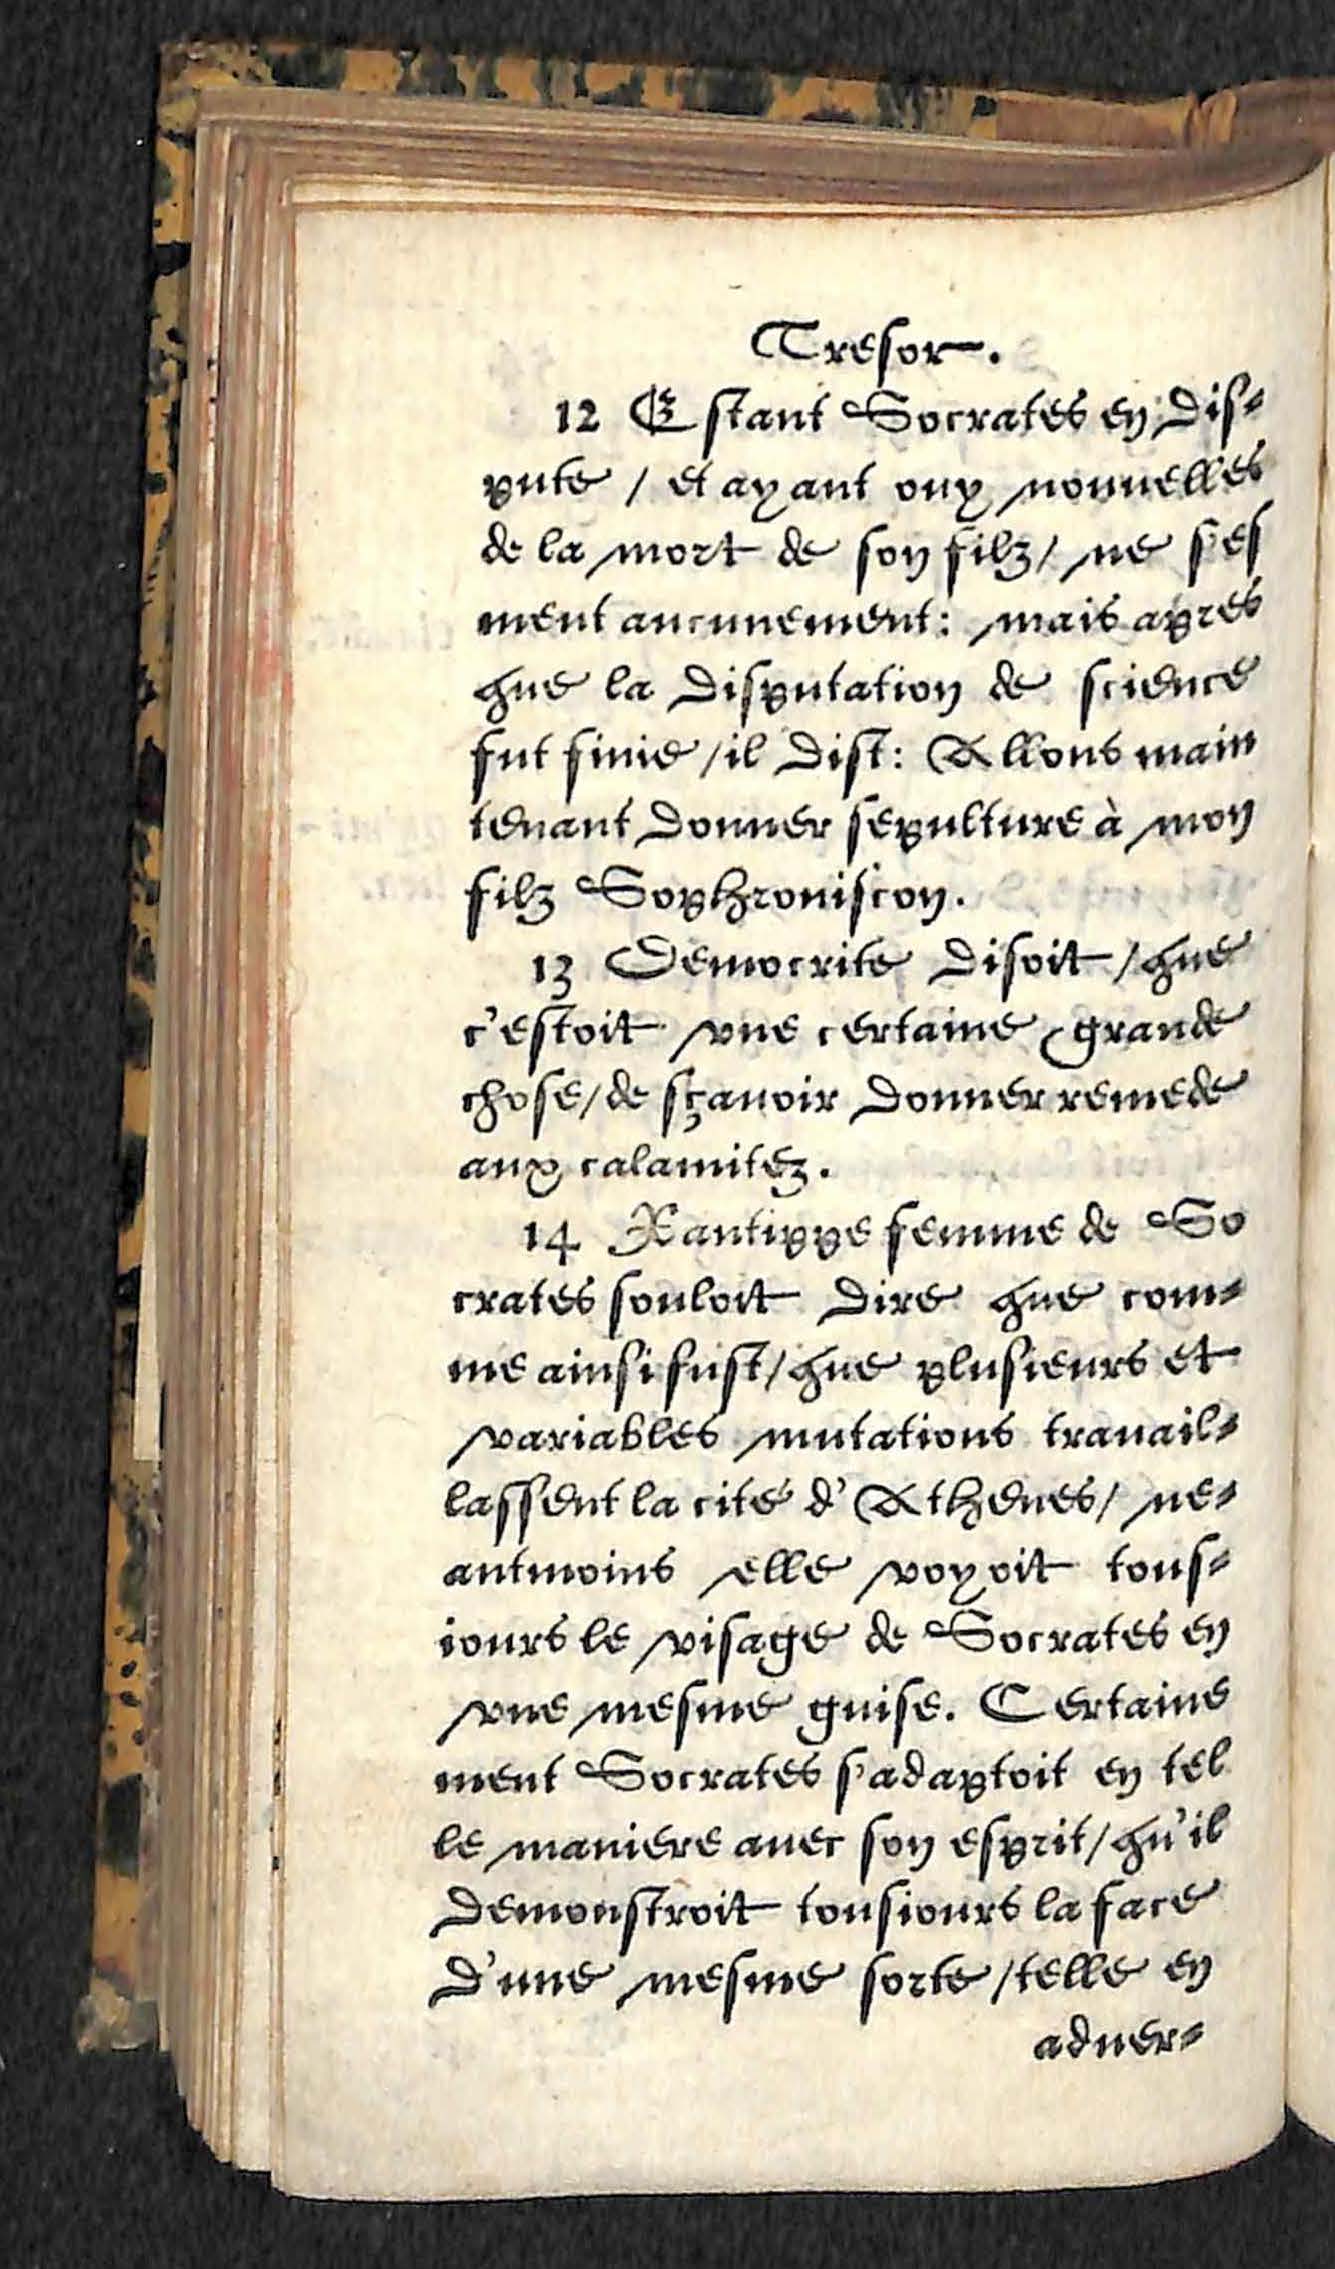 Tresor.
12 Estant Socrates en dis-
pute / et ayant ouy nouuelles
de la mort de son filz / ne s'es
ment aucunement: mais apres
que la disputation de science
fut finie / il dist: Allons main
tenant donner sepulture à mon
filz Sophroniscon.
13 Democrite disoit / que
c'estoit vne certaine grande
chose / de sçauoir donner remede
aux calamitez.
14 Xantippe femme de So
crates souloit dire que com-
me ainsi fust / que plusieurs et
variables mutations trauail-
lassent la cité d'Athenes / ne-
antmoins elle voyoit tous-
iours le visage de Socrates en
vne mesme guise. Certaine
ment Socrates s'adaptoit en tel
le maniere auec son esprit / qu'il
demonstroit tousiours la face
d'une mesme sorte / telle en
aduer-